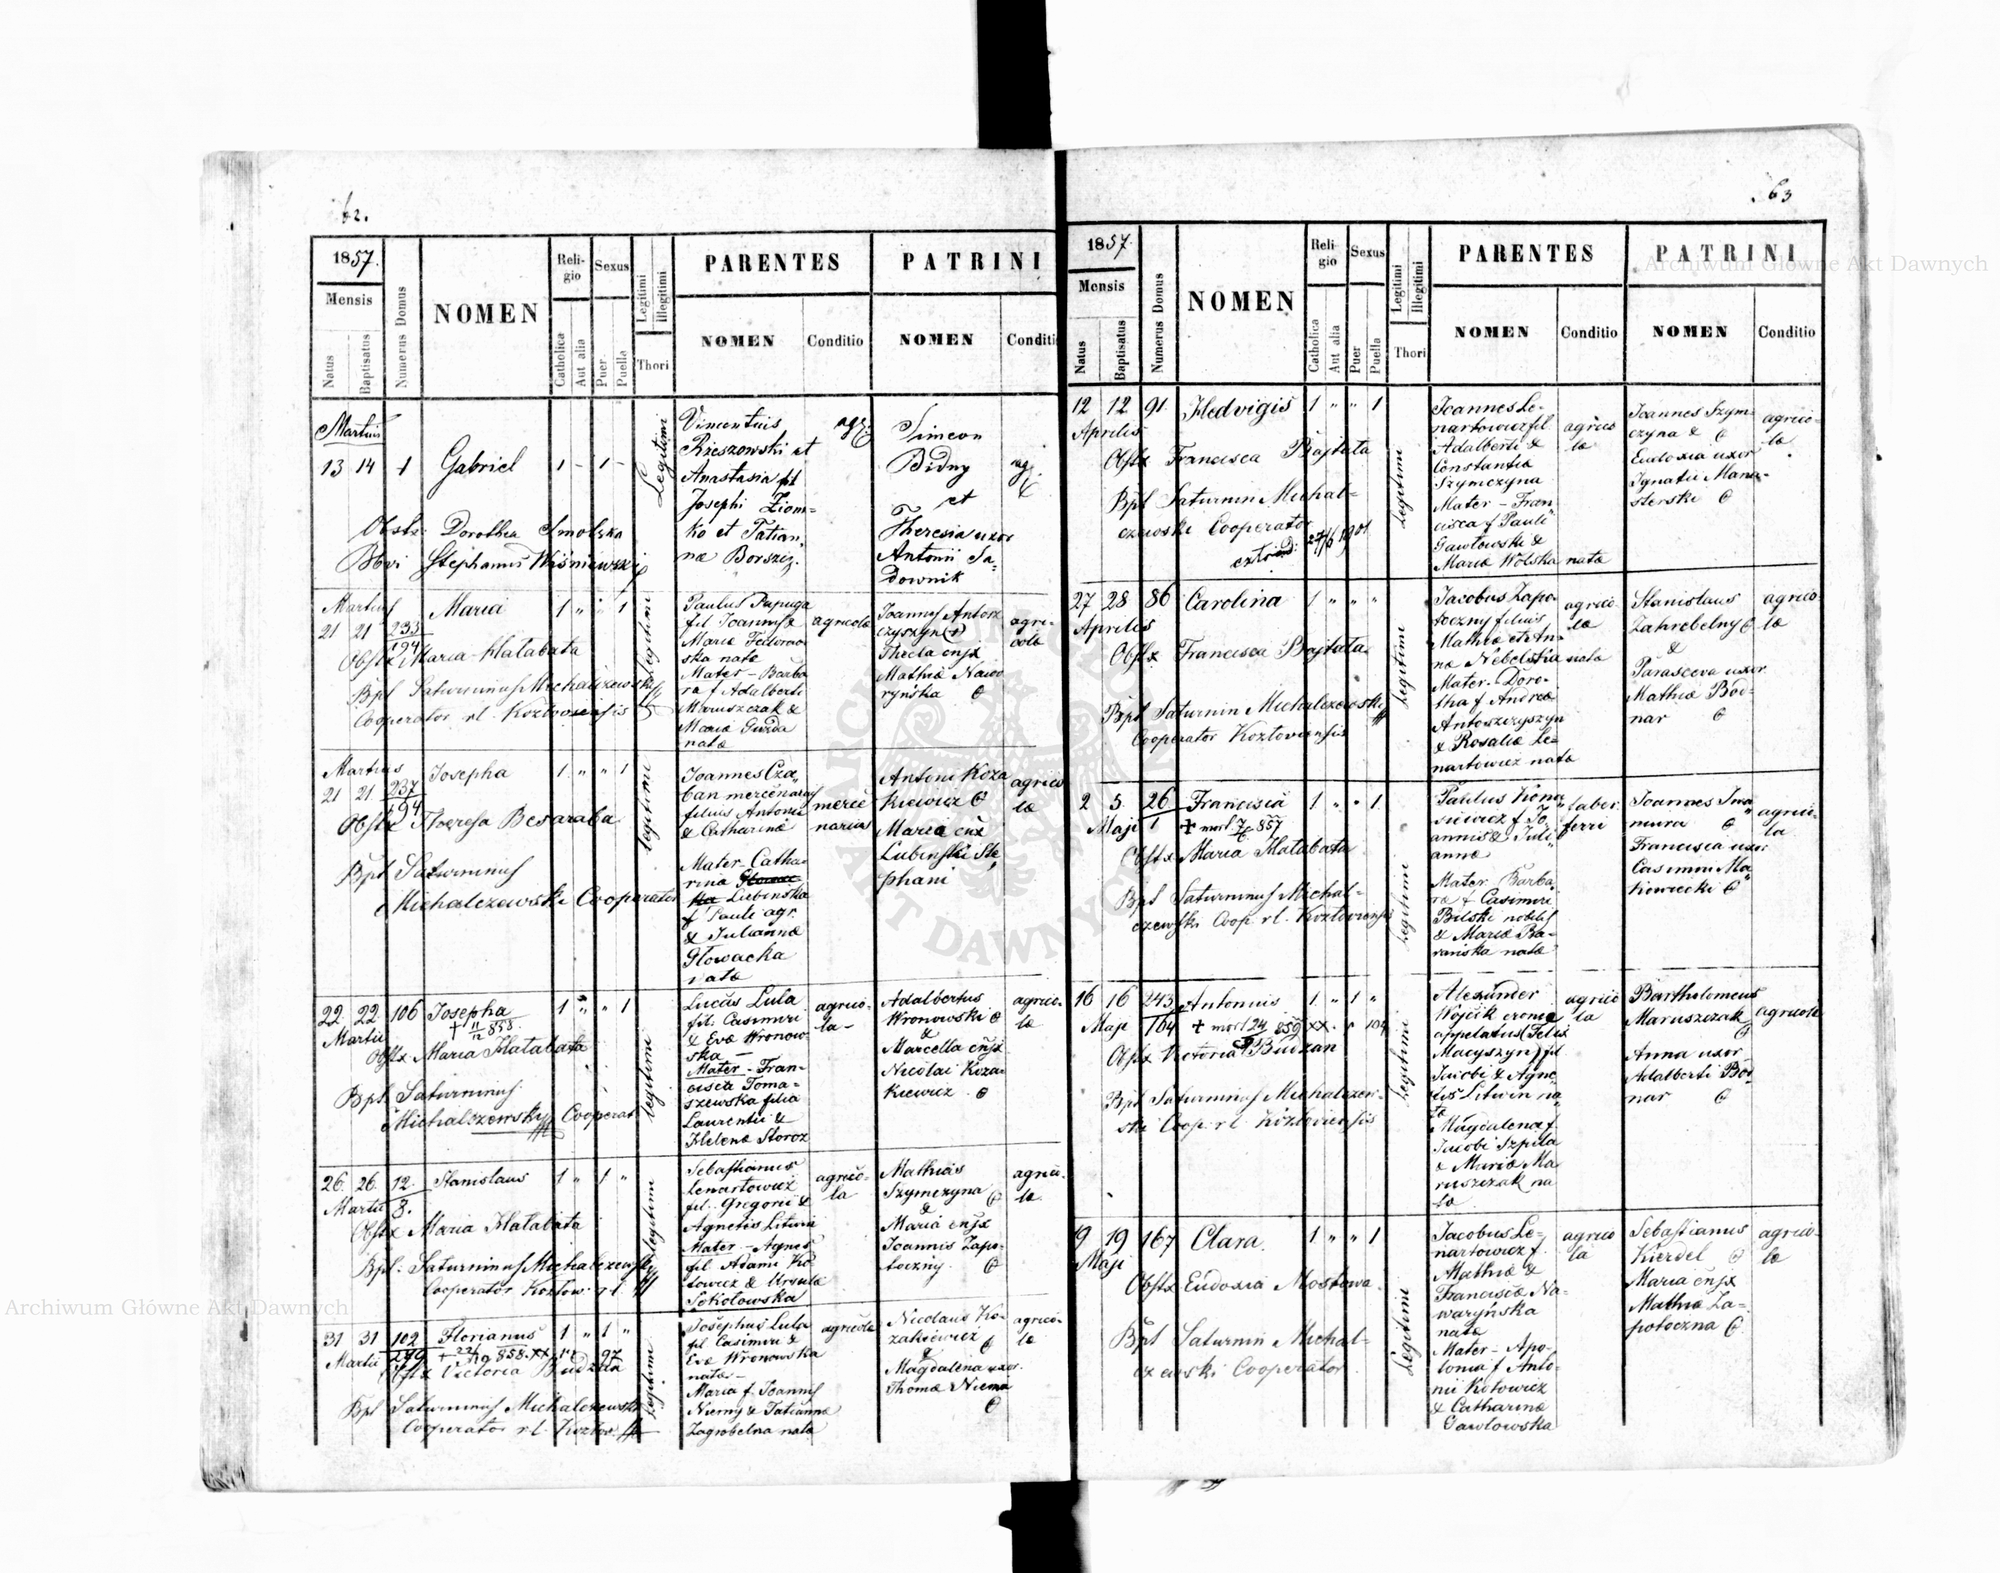 62.
1857.
Mensis
Natus
Baptisatus
Numerus Domus
NOMEN
Religio
Catholica
Aut alia
Sexus
Puer
Puella
Legitimi
Illegitimi
Thori
PARENTES
NOMEN
Conditio
PATRINI
NOMEN
Conditi
Martius
13 14 1 Gabriel 1 - 1 -
Obstx: Dorothea Smolska
Stephanus Wiśniewski
Legitimi
Vincentius
Rzeszowski et
Anastasia fil
Josephi Ziom-
ko et Tatian-
næ Borszcz.
agr.
Simeon
Bidny
et
Theresia uxor
Antonii Sa-
downik
agr.
Martius
21 21 233
194
Maria 1 " " 1
Obstx Maria Hatabata
Bpt Saturninus Michalczewski
Cooperator rl. Kozłoviensis
Legitimi
Paulus Papuga
fil Joannis &
Mariæ Fedorow-
ska natæ
Mater - Barba
ra f Adalberti
Maruszczak &
Mariæ Guzda
natæ
agricola
Joannes Antosz
czyszyn
Thecla cnjx
Mathiæ Nawa
ryńska
agri-
cola
Martius
21 21 237
194
Josepha 1 " " 1
Obstx Theresa Besaraba
Bpt Saturninus
Michalczewski Cooperator
Legitimi
Joannes Cza-
ban mercenarius
filius Antonii
& Catharinæ
Mater - Catha-
rina
Lubinska
f Pauli agr.
& Juliannæ
Głowacka
natæ
merce
narius
Antoni Koza
kiewicz
Maria cnjx
Lubinski Ste
phani
agrico
læ
22 22 106 Josepha 1 " " 1
Martii
+ 11/12 858.
Obstx Maria Hatabata
Bpt Saturninus
Michalszewski Cooperat
Legitimi
Lucas Lula
fil. Casimiri
& Evæ Wronow-
ska -
Mater - Fran-
cisca Toma-
szewska filia
Laurentii &
Helenæ Storoz
agrico-
la -
Adalbertus
Wronowski
&
Marcella cnjx
Nicolai Koza-
kiewicz
agrico-
læ
26 26 12. Stanislaus 1 " 1 "
Martii 8.
Obstx Maria Hatabata
Bpt. Saturninus Michalczewski
Cooperator Kozłow. rl.
Legitimi
Sebastianus
Lenartowicz
fil. Gregorii &
Agnetis Litwin
Mater - Agnes
fil Adami Ko
towicz & Ursulæ
Sokołowska
agrico-
la
Mathias
Szymczyna
&
Maria cnjx
Joannis Zapo-
toczny.
agrico-
læ
31 31 102 Florianus 1 " 1 "
Martii 249
Obstx Victoria Budzan
Bpt Saturninus Michalczewski
Cooperator rl. Kozłow.
Legitimi
Josephus Lula
fil Casimiri &
Evæ Wronowska
natæ -
Maria f. Joannis
Niemy & Tatiannæ
Zagrobelna natæ
agricola
Nicolaus Ko-
zakiewicz
&
Magdalena uxor
Thomæ Niema
agrico-
læ
63
1857.
Mensis
Natus
Baptisatus
Numerus Domus
NOMEN
Religio
Catholica
Aut alia
Sexus
Puer
Puella
Legitimi
Illegitimi
Thori
PARENTES
NOMEN
Conditio
PATRINI
NOMEN
Conditio
12 12 91. Hedvigis 1 " " 1
Aprilis
Obstx Francisca Bajtała
Bpt Saturnin Michal-
czewski Cooperator
Legitimi
Joannes Le-
nartowicz fil
Adalberti &
Constantiæ
Szymczyna
Mater - Fran-
cisca f Pauli
Gawłowski &
Mariæ Wolska natæ
agrico
la
Joannes Szym-
czyna &
Eudoxia uxor
Ignatii Mana-
sterski
agrico-
læ
27 28 86 Carolina 1 " " "
Aprilis
Obstx Francisca Bajtała
Bpt Saturnin Michalczewski
Cooperator Kozłoviensis
Legitimi
Jacobus Zapo-
toczny filius
Mathiæ et An-
næ Nebelska natæ
Mater - Doro-
thea f. Andreæ
Antoszczyszyn
& Rosaliæ Le-
nartowicz natæ
agrico
la
Stanislaus
Zahrebelny
&
Parasceva uxor
Mathiæ Bod-
nar
agrico
læ
2 3. 26 Francisca 1 " " 1.
Maji 1
Obstx Maria Hatabata
Bpt Saturninus Michal-
czewski Coop. rl. Kozłoviensis
Legitimi
Paulus Kiena
siewicz f Jo-
annis & Juli-
annæ
Mater Barba
ra f Casimiri
Bilski nobilis
& Mariæ Ba-
rańska natæ
faber
ferri
Joannes Sma
mura
Francisca uxor
Casimiri Ma
kowiecki
agrico-
la
16 16 243 Antonius 1 " 1 "
Maji 164
Obstx Victoria Budzan
Bpt Saturninus Michalczew-
ski Coop. rl. Kozłoviensis
Legitimi
Alexander
Wojcik
appelatus Felix
Macyszyn fil
Jacobi & Agne-
tis Litwin na
tæ
Magdalena f.
Jacobi Szpula
& Mariæ Ma
ruszczak na
tæ
agrico
la
Bartholomeus
Maruszczak
Anna uxor
Adalberti Bod-
nar
agricolæ
19 19 167 Clara. 1 " " 1
Maji
Obstx Eudoxia Mostowa
Bpt Saturnin Michal-
czewski Cooperator
Legitimi
Jacobus Le-
nartowicz f.
Mathiæ &
Franciscæ Na-
waryńska
natæ
Mater - Apo-
lonia f Anto-
nii Kotowicz
& Catharinæ
Gawłowska
agrico
la
Sebastianus
Kierdel
Maria cnjx
Mathiæ Za-
potoczna
agrico-
læ
Archiwum Główne Akt Dawnych
Archiwum Główne Akt Dawnych
ARCHIWUM GŁÓWNE AKT DAWNYCH